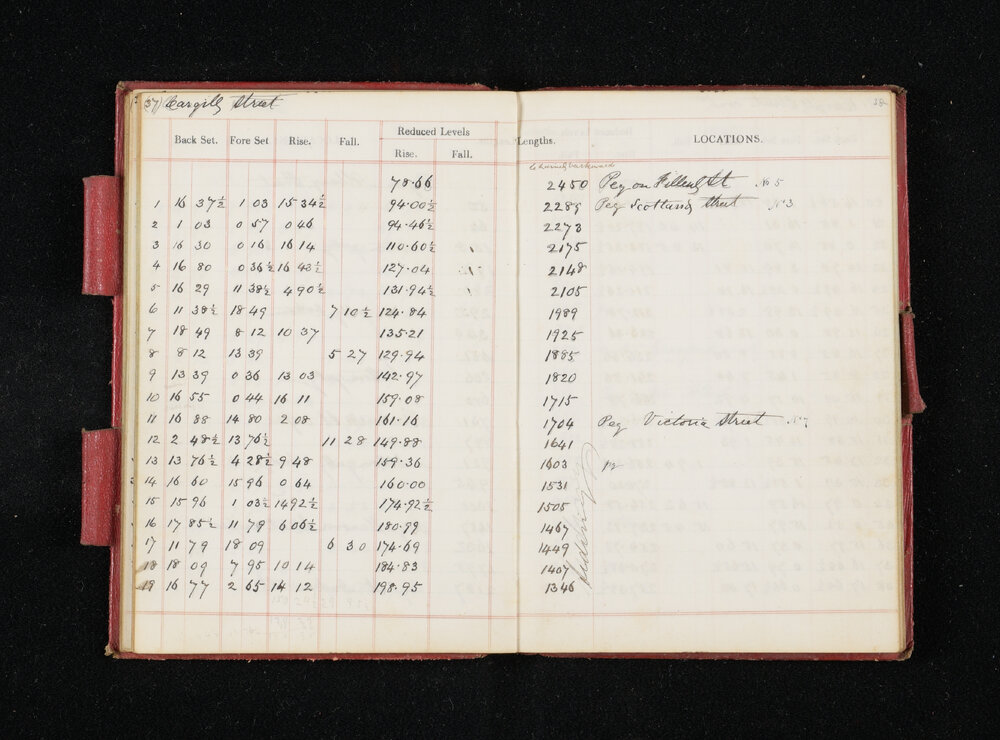 37 Cargill Street
38
Back Set. Fore Set Rise. Fall. Reduced Levels Lengths. LOCATIONS.
Rise. Fall.
Chained backwards
78.66 2450 Peg on Filleul St No 5
1 16 37½ 1 03 15 34½ 94.00½ 2289 Peg Scotland Street No 3
2 1 03 0 57 0 46 94.46½ 2273
3 16 30 0 16 16 14 110.60½ 2175
4 16 80 0 36½ 16 43½ 127.04 2148
5 16 29 11 38½ 4 90½ 131.94½ 2105
6 11 38½ 18 49 7 10½ 124.84 1989
7 18 49 8 12 10 37 135.21 1925
8 8 12 13 39 5 27 129.94 1885
9 13 39 0 36 13 03 142.97 1820
10 16 55 0 44 16 11 159.08 1715
11 16 88 14 80 2 08 161.16 1704 Peg Victoria Street
12 2 48½ 13 76½ 11 28 149.88 1641
13 13 76½ 4 28½ 9 48 159.36 1603
14 16 60 15 96 0 64 160.00 1531
15 15 96 1 03½ 14 92½ 174.92½ 1505
16 17 85½ 11 79 6 06½ 180.99 1467
17 11 79 18 09 6 30 174.69 1449
18 18 09 7 95 10 14 184.83 1407
19 16 77 2 65 14 12 198.95 1346